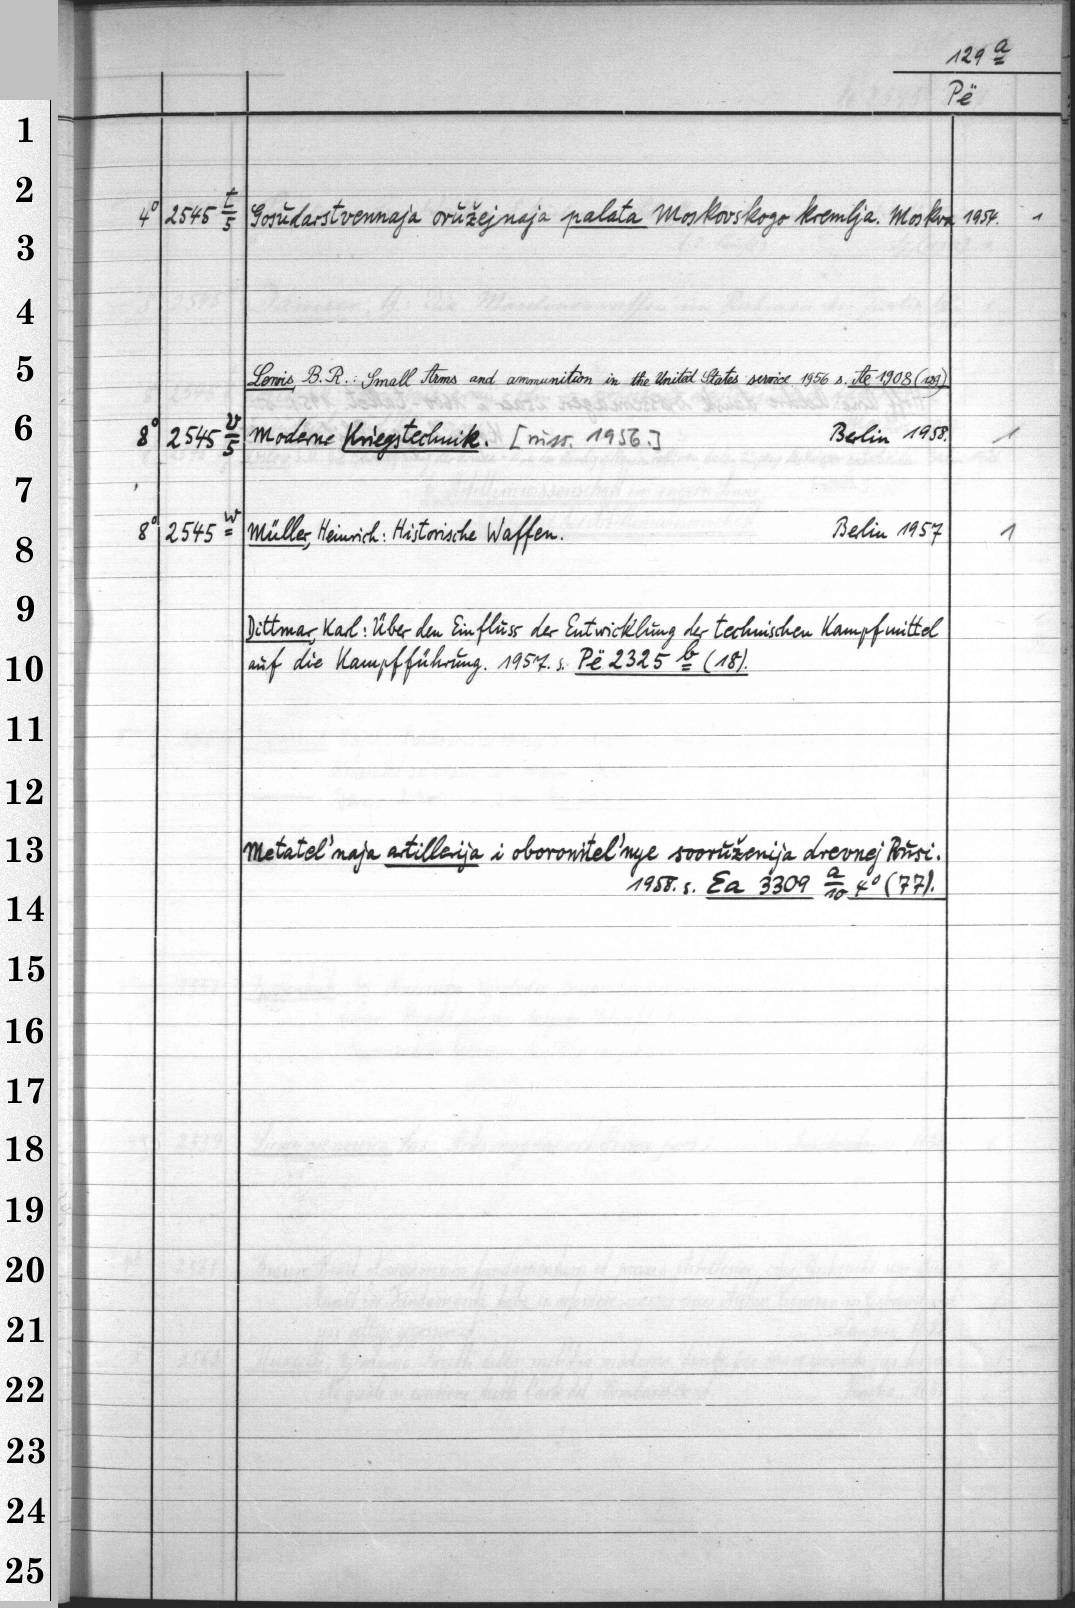 129 a
Pë
1
2
3
4
5
6
7
8
9
10
11
12
13
14
15
16
17
18
19
20
21
22
23
24
25
4° 2545 t/5 Gosudarstvennaja oružejnaja palata Moskovskogo kremlja. Moskva 1954. 1
Lewis, B. R.: Small Arms and ammunition in the United States service 1956 s. Ae 1908 (129)
8° 2545 v/5 Moderne Kriegstechnik. [russ. 1956.] Berlin 1958. 1
8° 2545 w Müller, Heinrich: Historische Waffen. Berlin 1957 1
Dittmar, Karl: Über den Einfluss der Entwicklung der technischen Kampfmittel
auf die Kampfführung. 1957. s. Pë 2325 b (18).
Metatel'naja artillerija i oboronitel'nye sooruženija drevnej Rusi.
1958. s. Ea 3309 a/10 4° (77).